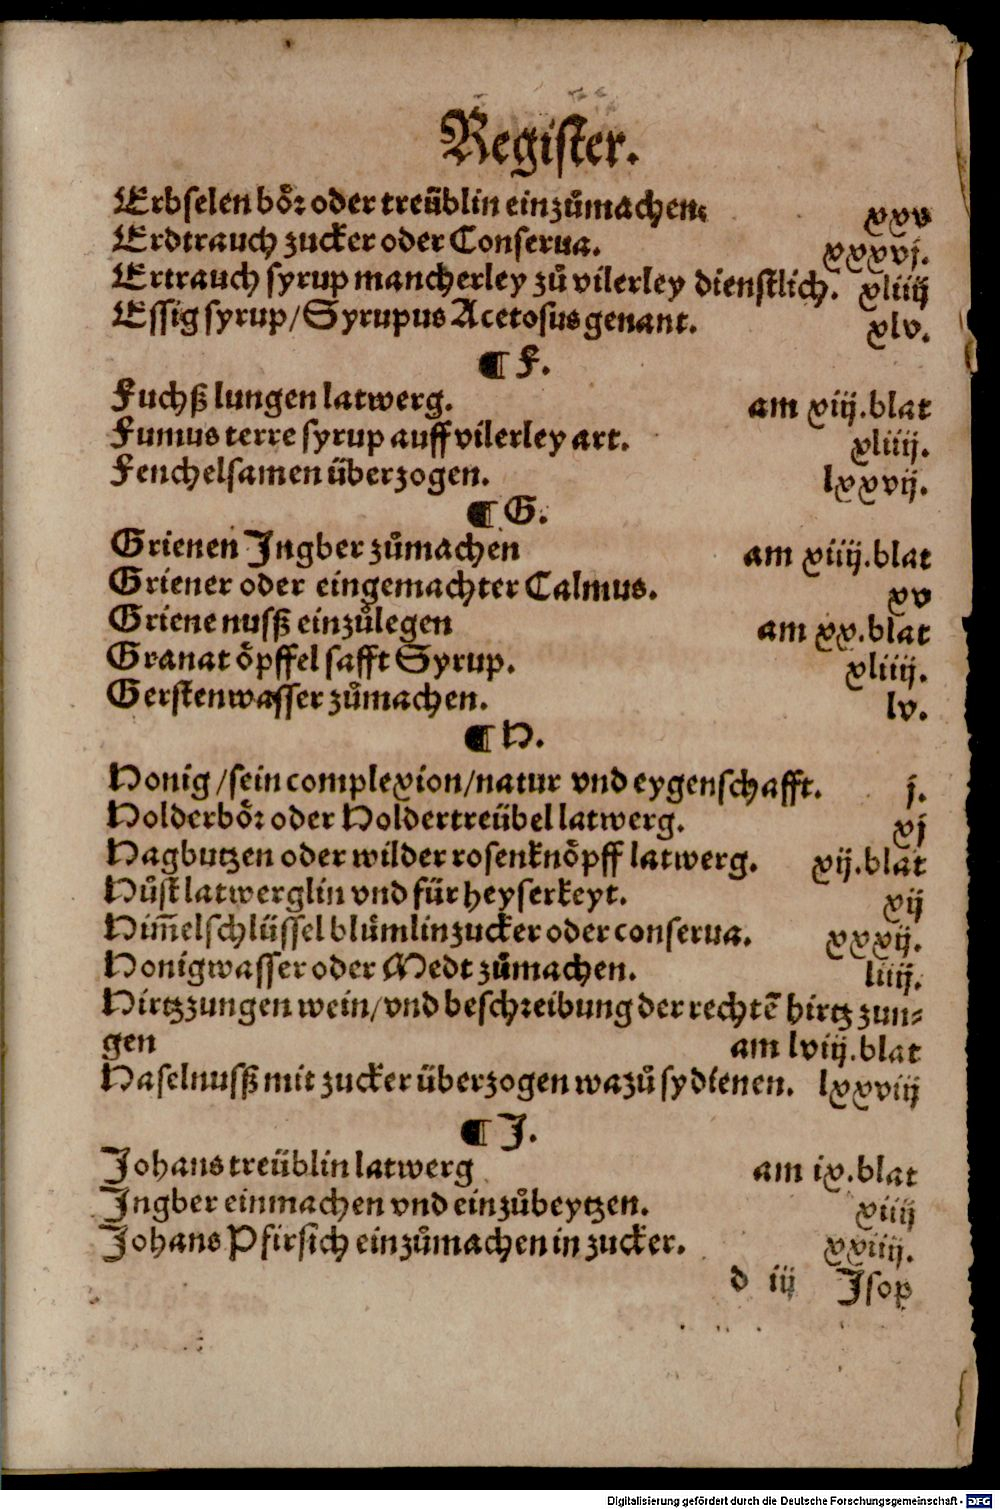 Register.
Erbselen bör oder treüblin einzůmachen. xxv
Erdtrauch zucker oder Conserua. xxxvj.
Ertrauch syrup mancherley zů vilerley dienstlich. xliiij
Essig syrup/Syrupus Acetosus genant. xlv.
¶ F.
Fuchß lungen latwerg. am xiij.blat
Fumus terre syrup auff vilerley art. xliiij.
Fenchelsamen überzogen. lxxvij.
¶ G.
Grienen Jngber zůmachen am xiiij.blat
Griener oder eingemachter Calmus. xv
Griene nusß einzůlegen am xx.blat
Granat öpffel safft Syrup. xliiij.
Gerstenwasser zůmachen. lv.
¶ H.
Honig/sein complexion/natur vnd eygenschafft. j.
Holderbör oder Holdertreübel latwerg. xj
Hagbutzen oder wilder rosenknöpff latwerg. xij.blat
Hůst latwerglin vnd für heyserkeyt. xij
Him̅elschlüssel blůmlinzucker oder conserua. xxxij.
Honigwasser oder Medt zůmachen. liiij.
Hirtzzungen wein/vnd beschreibung der rechtē hirtz zun⸗
gen am lviij.blat
Haselnusß mit zucker überzogen wazů sy dienen. lxxviij
¶ J.
Johans treüblin latwerg am ix.blat
Jngber einmachen vnd einzůbeytzen. xiiij
Johans Pfirsich einzůmachen in zucker. xxiij.
d iij Jsop
Digitalisierung gefördert durch die Deutsche Forschungsgemeinschaft - DFG